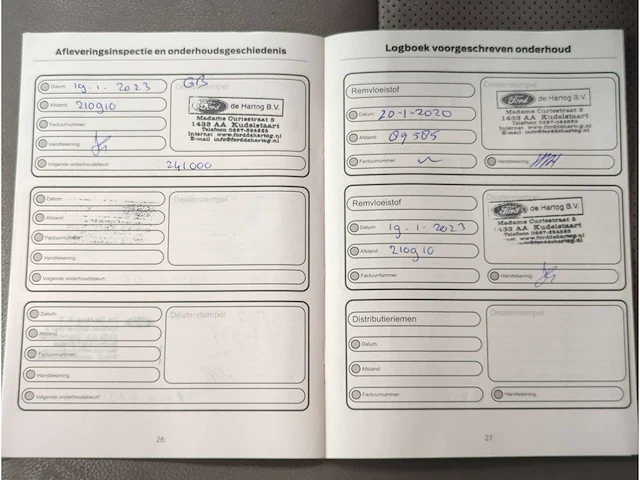 Afleveringsinspectie en onderhoudsgeschiedenis
Datum: 19-1-2023
GB
Dealerstempel
Ford de Hartog B.V.
Afstand: 210910
Madame Curiestraat 3
1433 AA Kudelstaart
Telefoon 0297-324533
Factuurnummer:
Internet www.forddehartog.nl
E-mail info@forddehartog.nl
Handtekening:
Volgende onderhoudsbeurt: 241.000
Datum:
Dealerstempel
Afstand:
Factuurnummer:
Handtekening:
Volgende onderhoudsbeurt:
Datum:
Dealerstempel
Afstand:
Factuurnummer:
Handtekening:
Volgende onderhoudsbeurt:
26
Logboek voorgeschreven onderhoud
Remvloeistof
Dealerstempel
Ford de Hartog B.V.
Datum: 20-1-2020
Madame Curiestraat 3
1433 AA Kudelstaart
Afstand: 89585
Internet www.forddehartog.nl
E-mail info@forddehartog.nl
Factuurnummer:
Handtekening:
Remvloeistof
Ford de Hartog B.V.
Datum: 19-1-2023
Madame Curiestraat 3
1433 AA Kudelstaart
Afstand: 210910
Factuurnummer:
Handtekening:
Distributieriemen
Dealerstempel
Datum:
Afstand:
Factuurnummer:
Handtekening:
27